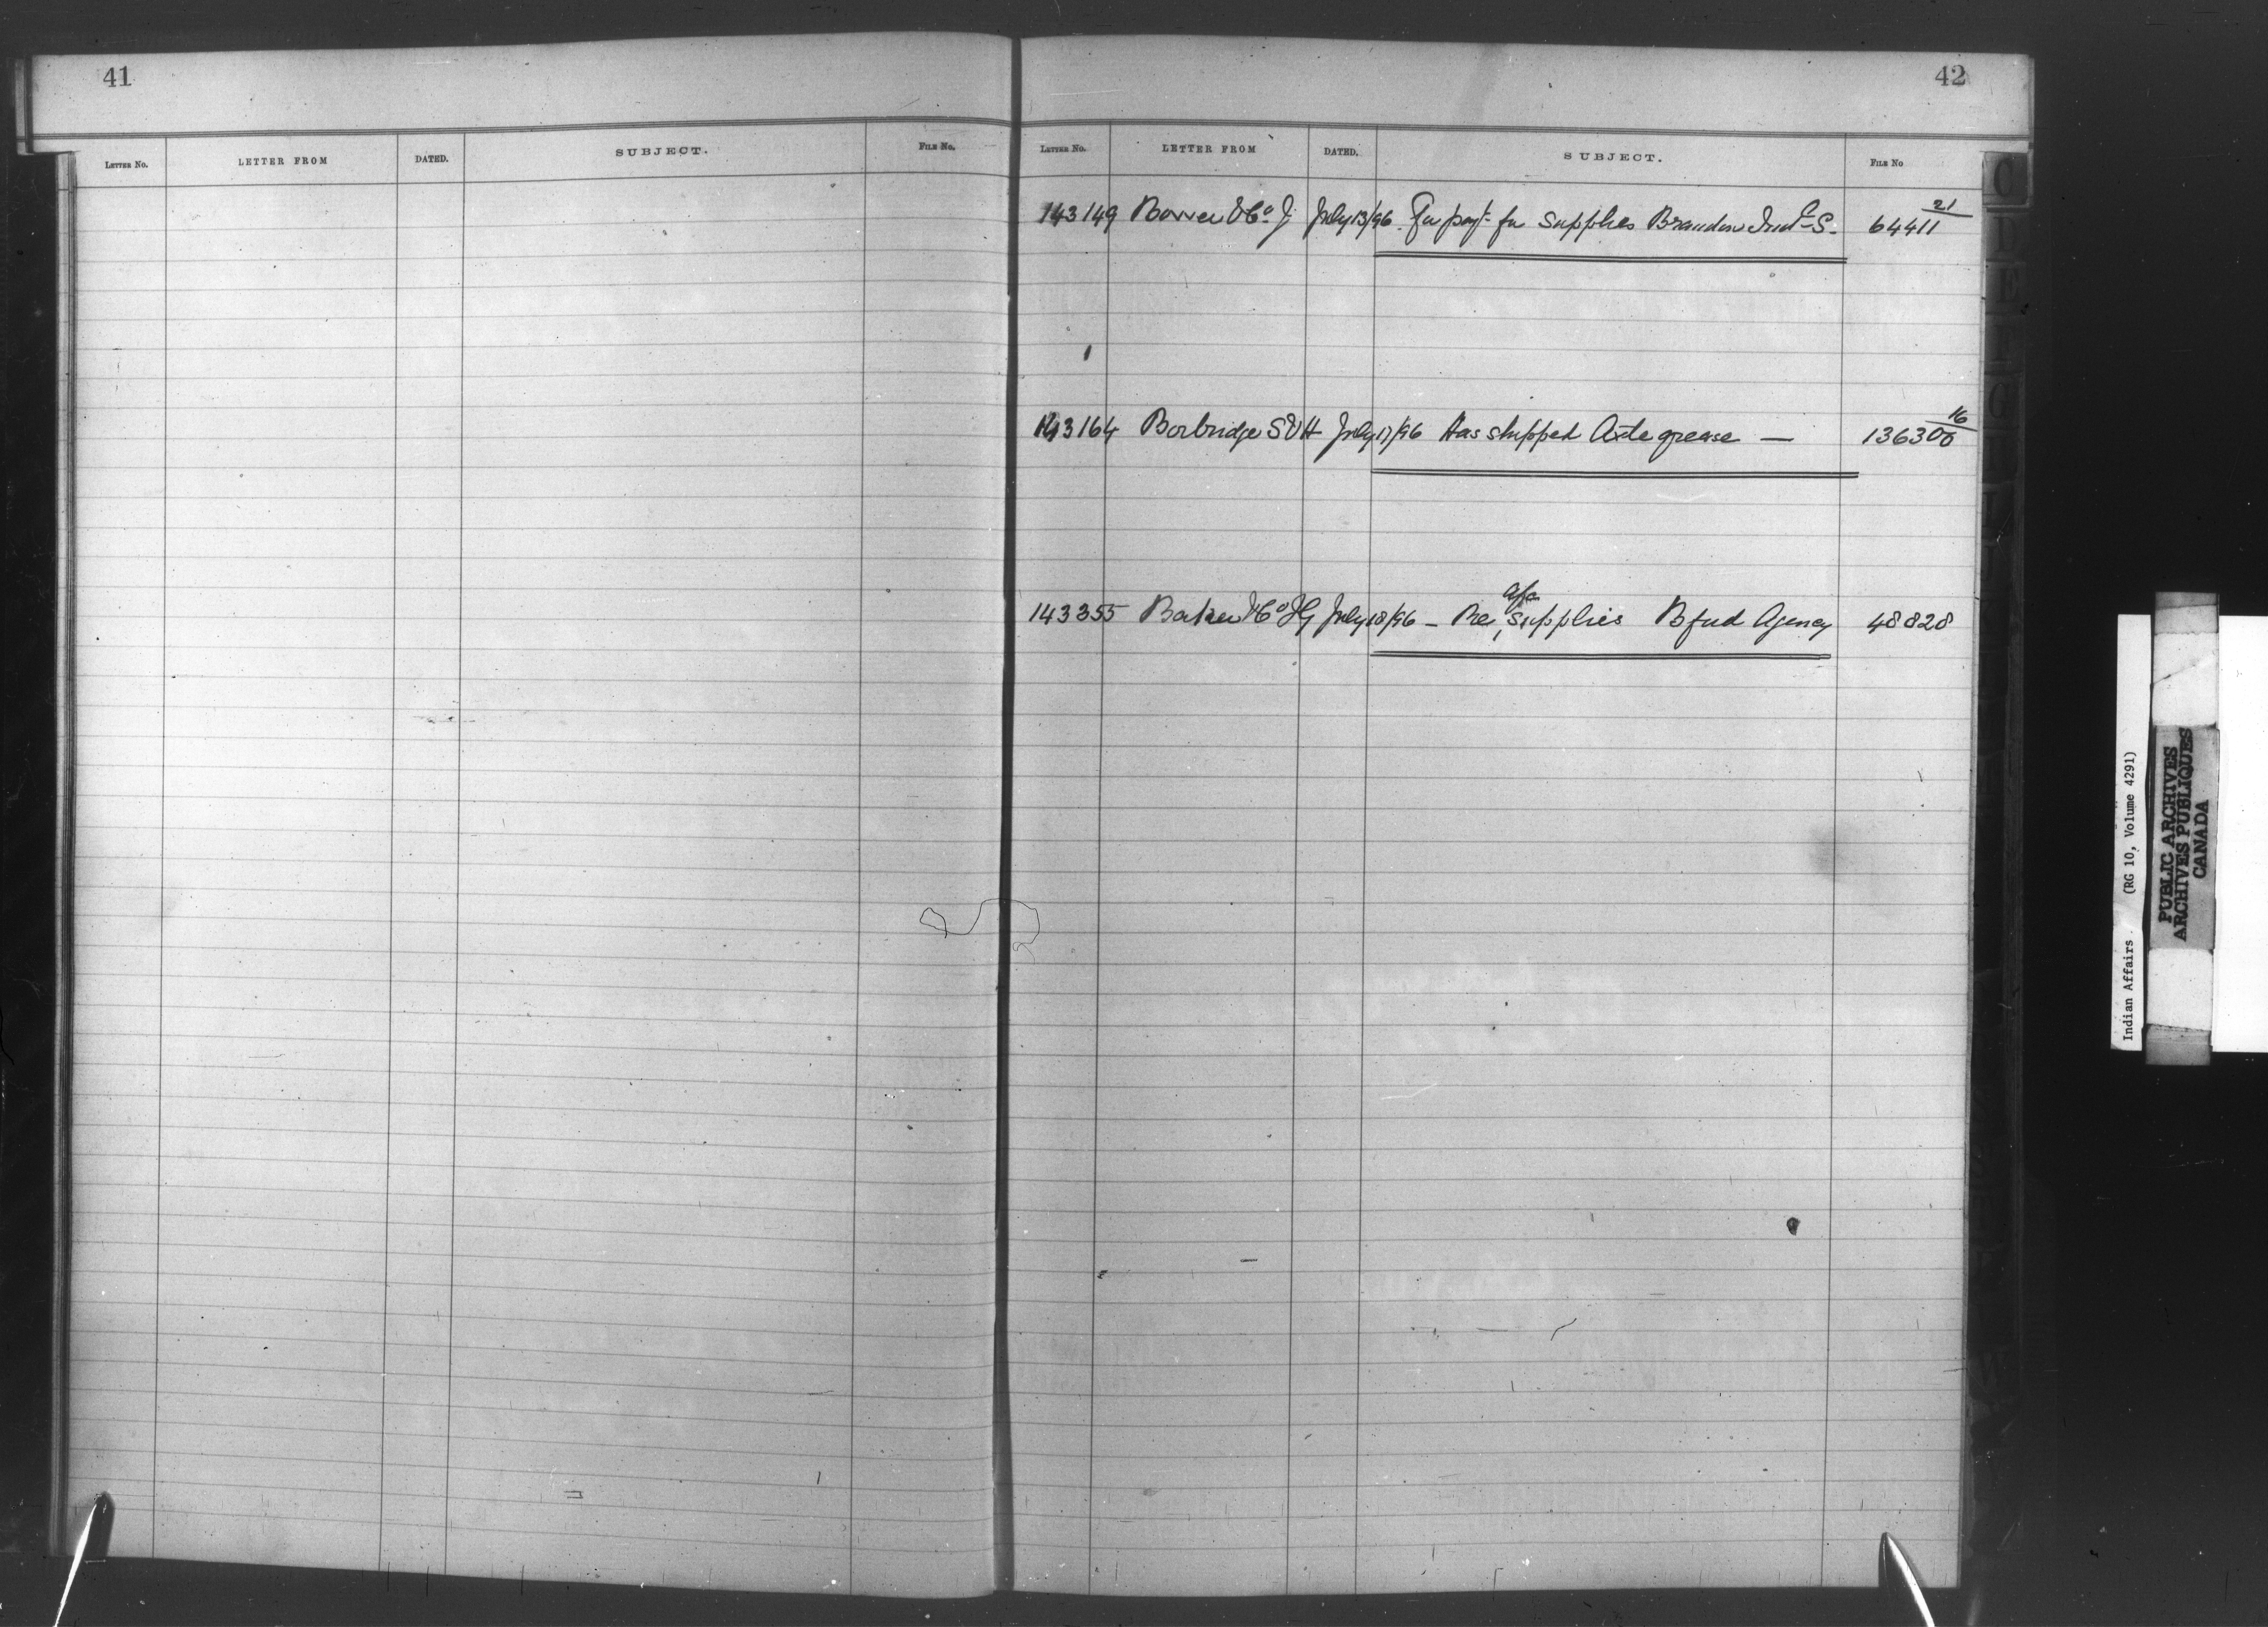 41
LETTER NO. LETTER FROM DATED. SUBJECT. FILE NO.
42
LETTER NO. LETTER FROM DATED. SUBJECT. FILE NO
21
143149 & Co J. July 13/96. For payt. for supplies Brandon Indl S. 64411
16
143164 Borbridge S & H July 17/96 Has shipped Axle grease — 136300
a/c
143355 Baker & Co I G July 18/96 – Re, supplies Bfud Agency 48828
Indian Affairs. (RG 10, Volume 4291)
PUBLIC ARCHIVES
ARCHIVES PUBLIQUES
CANADA
C
D
E